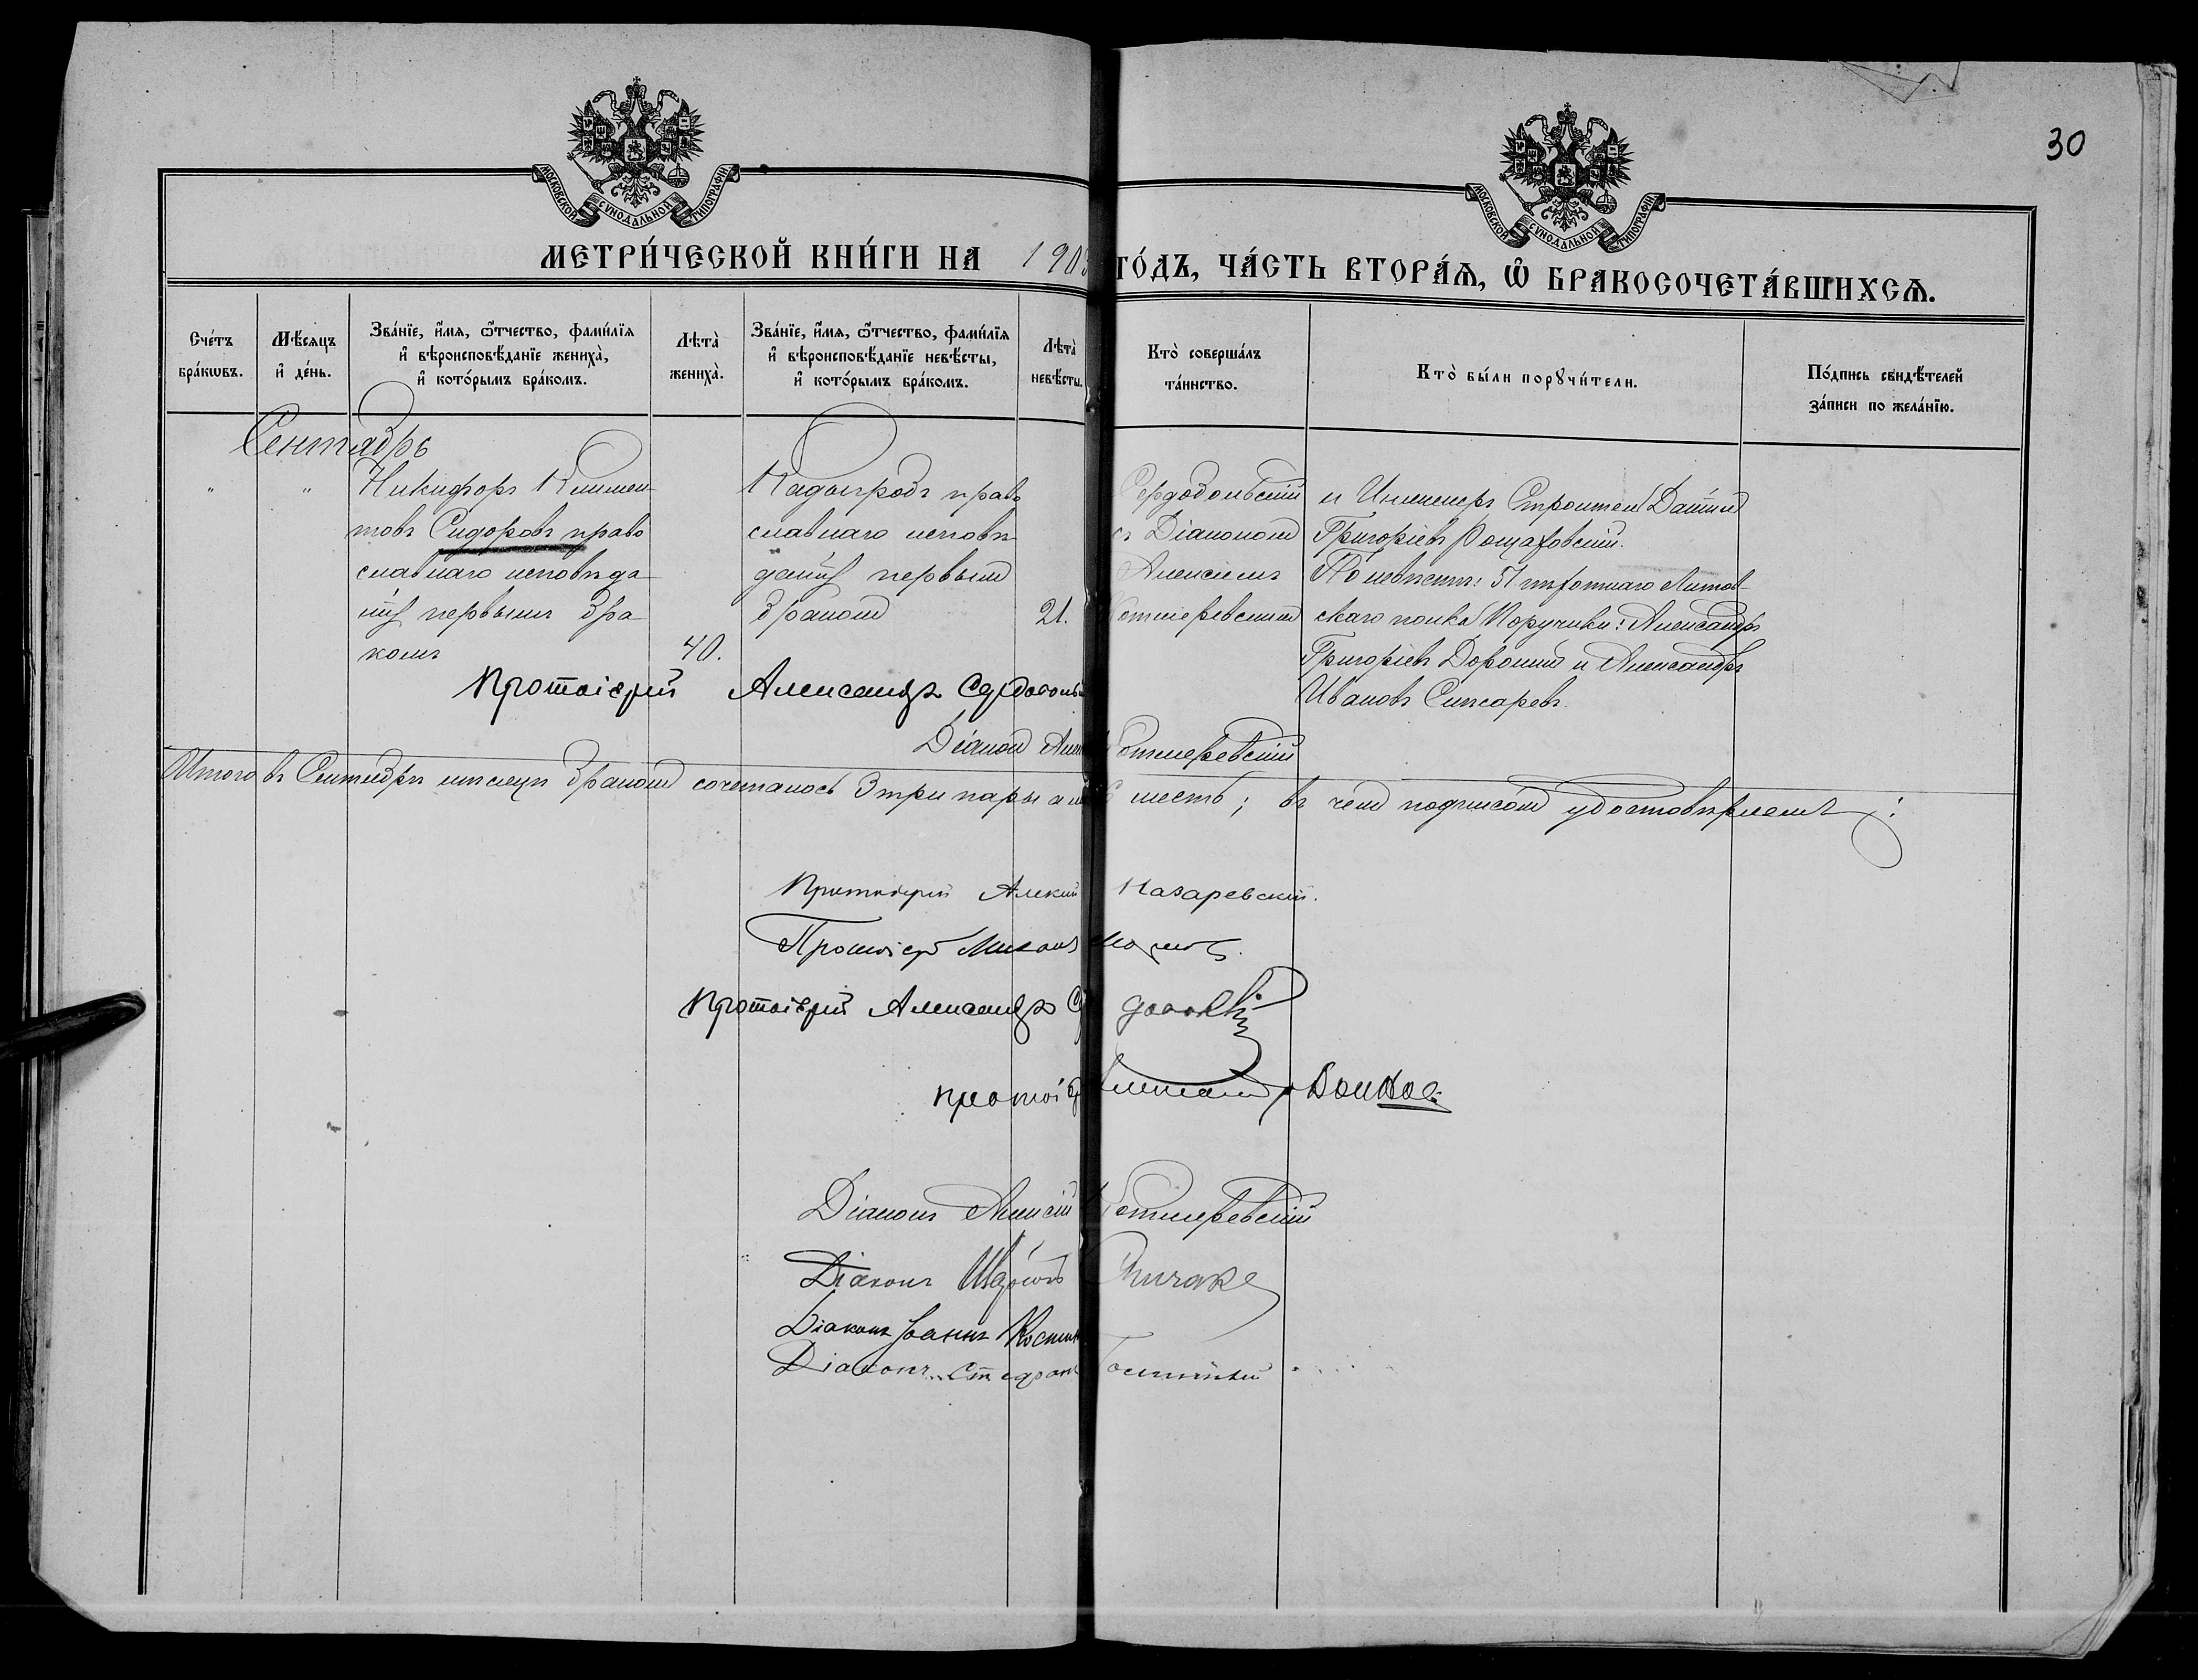 30
МОСКОВСКОЙ СѴНОДАЛЬНОЙ ТИПОГРАФІИ
МОСКОВСКОЙ СѴНОДАЛЬНОЙ ТИПОГРАФІИ
МЕТРИ́ЧЕСКОЙ КНИ́ГИ НА 1903 ГО́ДЪ, ЧА́СТЬ ВТОРА́Ѧ, Ѡ҆ БРАКОСОЧЕТА́ВШИХСѦ.
Сче́тъ
бра́кѡвъ.
Мѣ́сяцъ
и҆ де́нь.
Зва́нїе, и҆́мѧ, ѻ҆́тчество, фами́лїѧ
и҆ вѣроисповѣ́данїе жениха̀,
и҆ кото́рымъ бра́комъ.
Лѣта̀
жениха̀.
Зва́нїе, и҆́мѧ, ѻ҆́тчество, фами́лїѧ
и҆ вѣроисповѣ́данїе невѣ́сты,
и҆ кото́рымъ бра́комъ.
Лѣта̀
невѣ́сты.
Кто̀ соверша́лъ
та́инство.
Кто̀ бы́ли порꙋчи́тели.
По́дпись свидѣ́телей
за́писи по жела́нїю.
Сентябрь
" "
Никифоръ Климен
товъ Сидоровъ право
славнаго исповѣда
нія первымъ бра
комъ
40.
Кадыгробъ право
славнаго исповѣ
данія первымъ
бракомъ
21.
Сердобольскій
съ Діакономъ
Алексіемъ
Котляревскимъ
и Инженеръ Строитель Даніилъ
Григоріевъ
По невѣстѣ: 51 пѣхотнаго Литов-
скаго полка Поручики: Александръ
Григоріевъ Доронинъ и Александръ
Ивановъ Сипсаревъ.
Протоіерей Александръ Сердоболь
Діаконъ Алек Котляревскій
Итого въ Сентябрѣ мѣсяцѣ бракомъ сочеталось 3 три пары а 6 шесть; въ чемъ подписомъ удостовѣряемъ:
Протоіерей Алексій Назаревскій.
Протоіер Михаил
Протоіерей Александръ Сердобольскій
протоіер
Діаконъ Алексій Котляревскій
Діаконъ Спичаке
Діаконъ Іоаннъ
Діаконъ Стефанъ